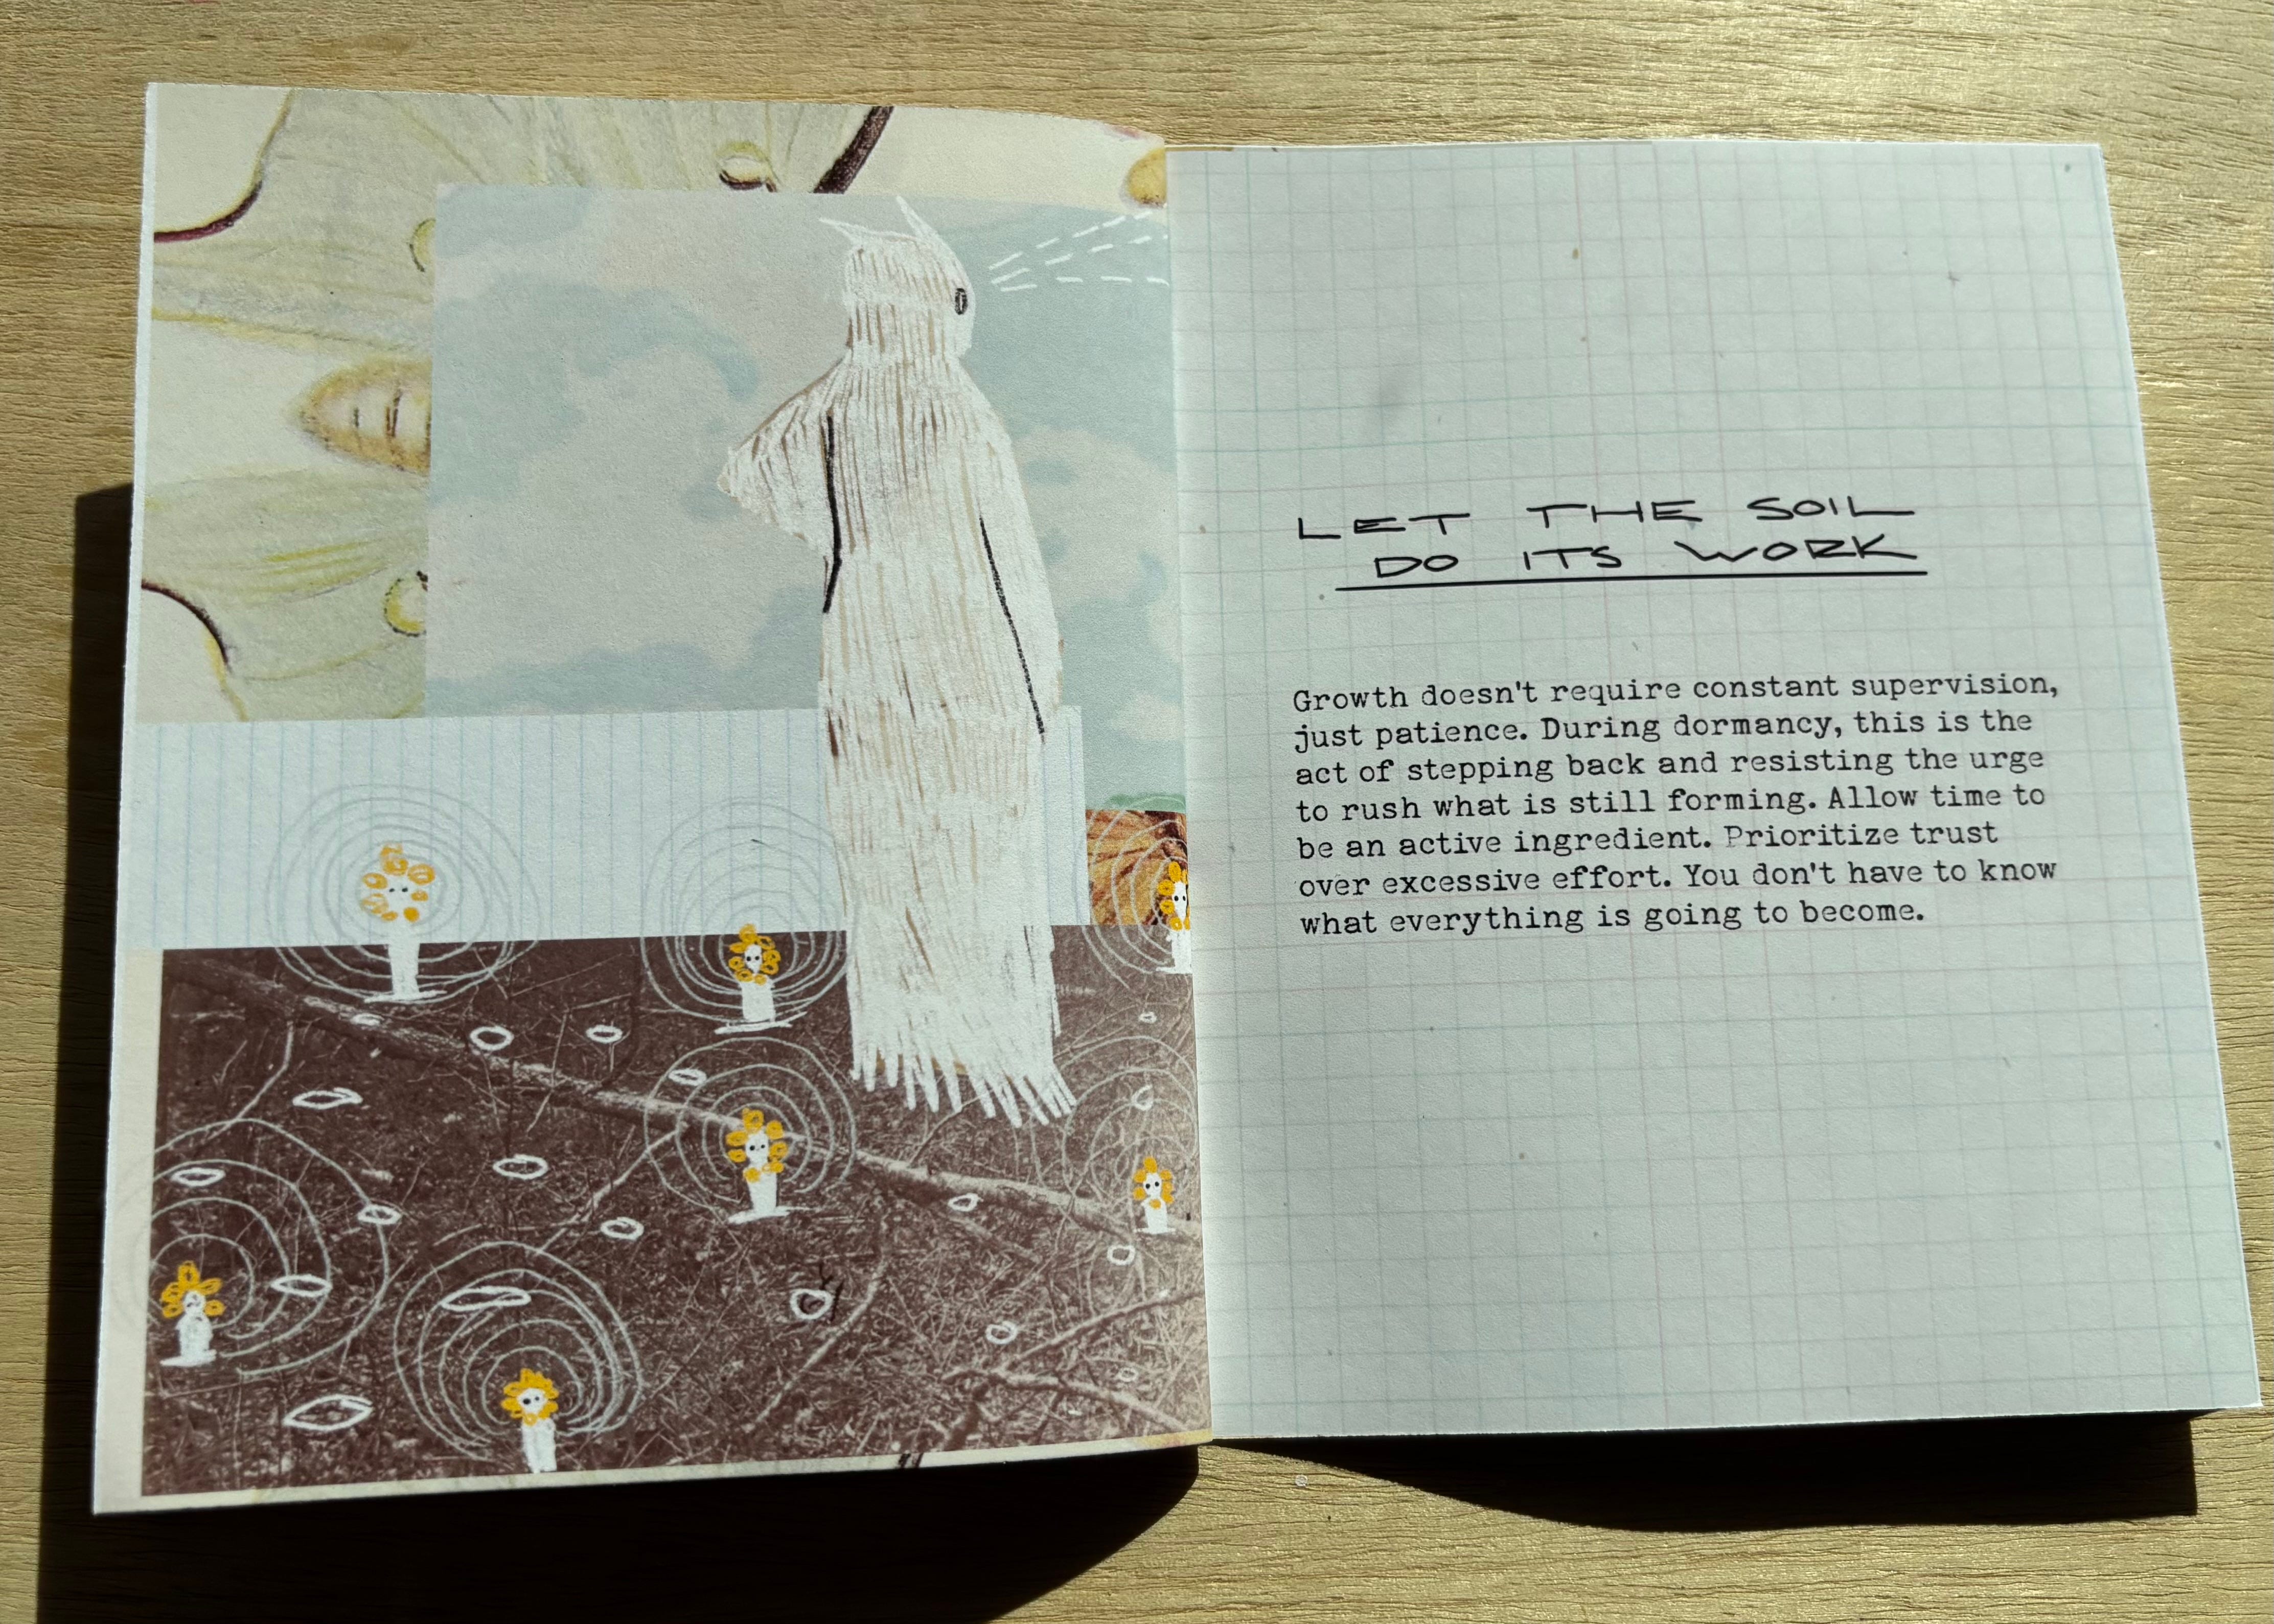 LET THE SOIL
DO ITS WORK
Growth doesn't require constant supervision,
just patience. During dormancy, this is the
act of stepping back and resisting the urge
to rush what is still forming. Allow time to
be an active ingredient. Prioritize trust
over excessive effort. You don't have to know
what everything is going to become.